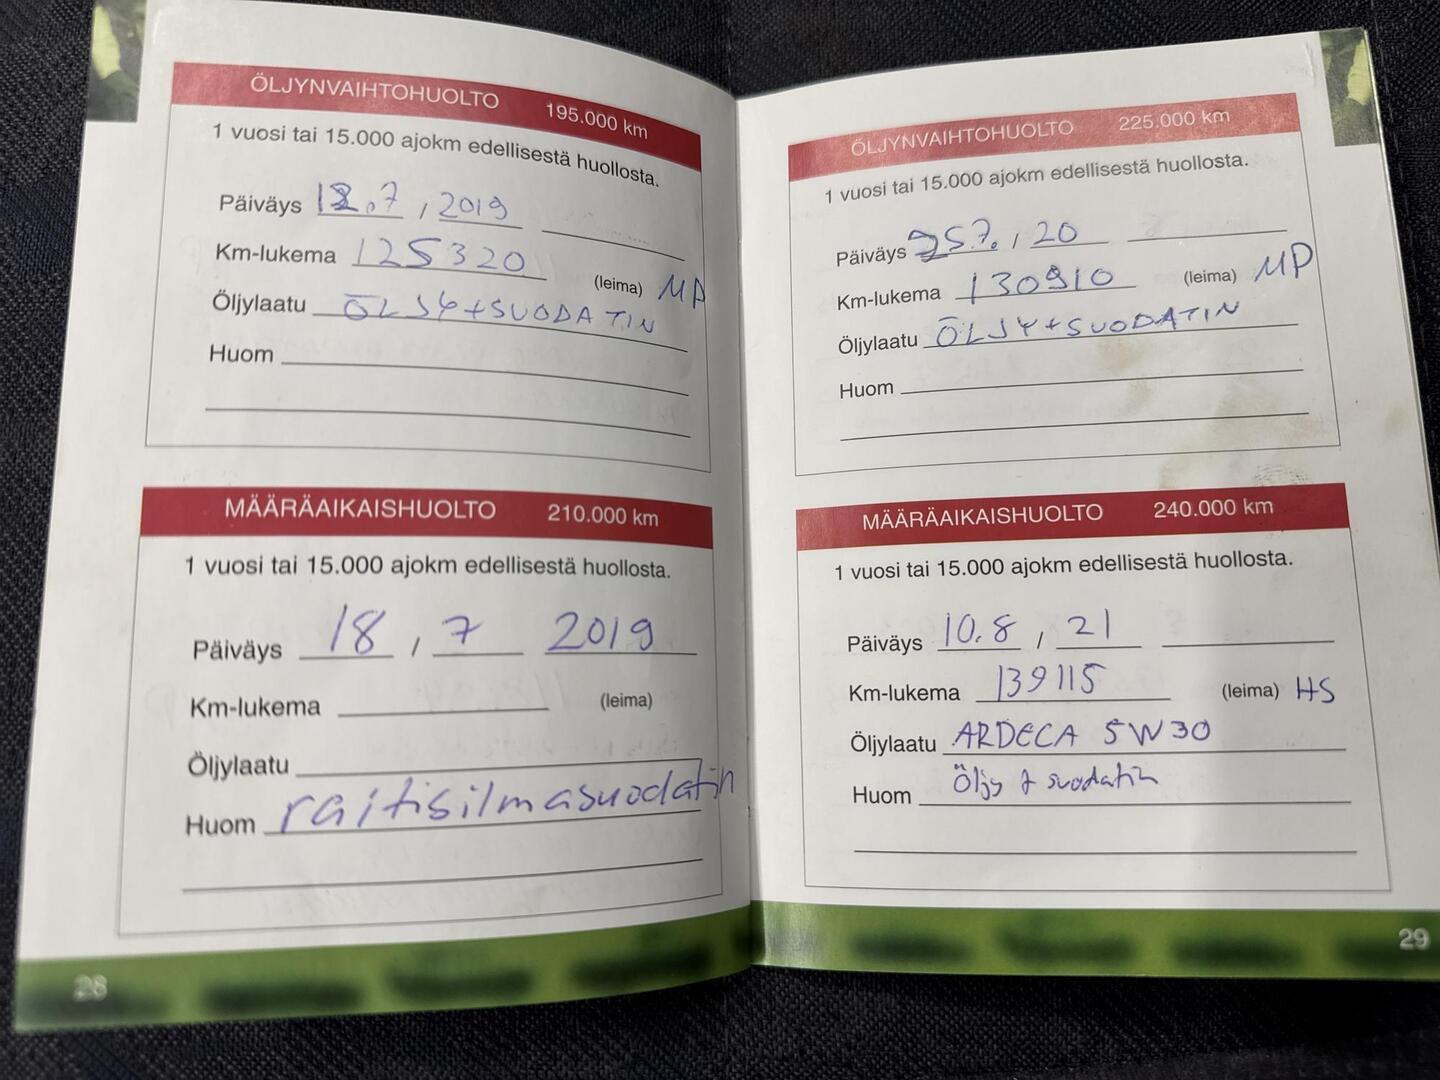 ÖLJYNVAIHTOHUOLTO 195.000 km
1 vuosi tai 15.000 ajokm edellisestä huollosta.
Päiväys 12.7 / 2019
Km-lukema 125320 (leima) MP
Öljylaatu ÖLJY+SUODATIN
Huom
MÄÄRÄAIKAISHUOLTO 210.000 km
1 vuosi tai 15.000 ajokm edellisestä huollosta.
Päiväys 18 / 7 2019
Km-lukema (leima)
Öljylaatu
Huom raitisilmasuodatin
28
ÖLJYNVAIHTOHUOLTO 225.000 km
1 vuosi tai 15.000 ajokm edellisestä huollosta.
Päiväys 25.7. / 20
Km-lukema 130910 (leima) MP
Öljylaatu ÖLJY+SUODATIN
Huom
MÄÄRÄAIKAISHUOLTO 240.000 km
1 vuosi tai 15.000 ajokm edellisestä huollosta.
Päiväys 10.8 / 21
Km-lukema 139115 (leima) HS
Öljylaatu ARDECA 5W30
Huom Öljy & suodatin
29